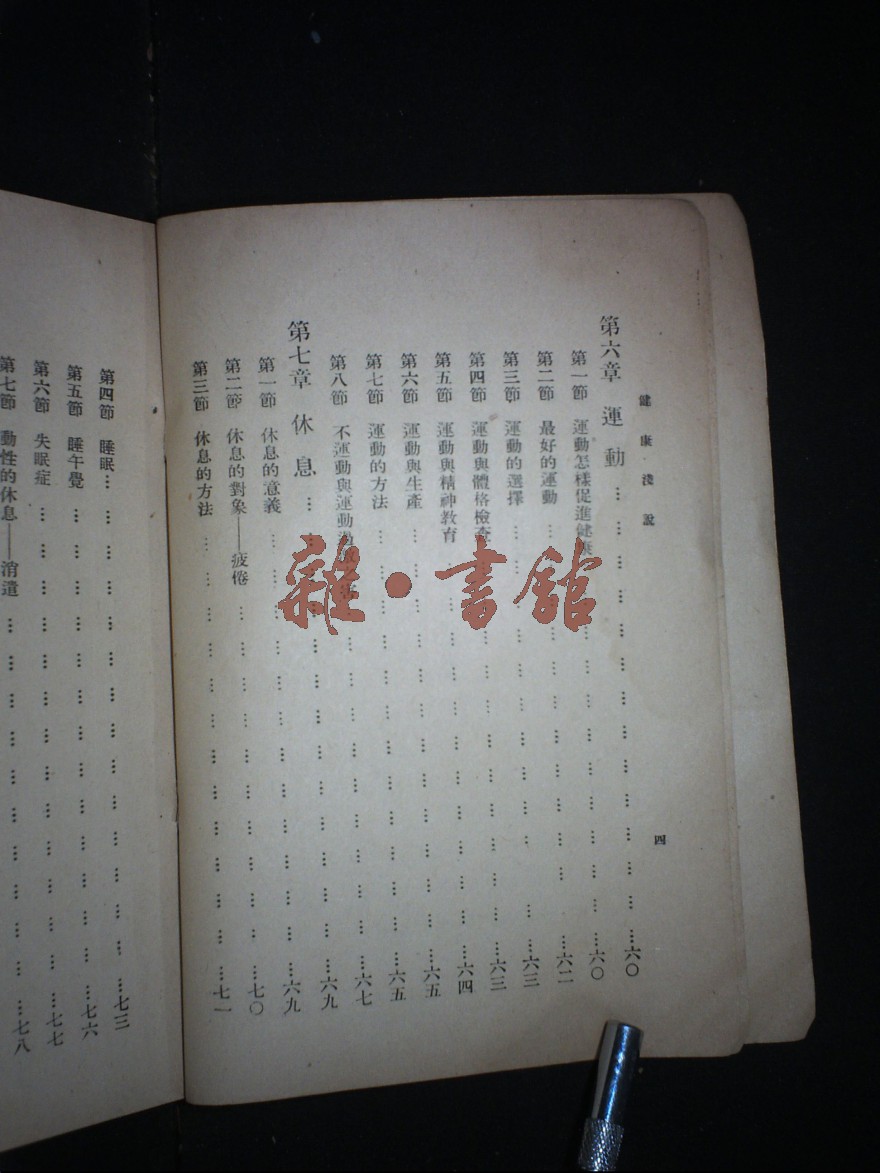 健康淺說 四
第六章 運動 … … … … … … … … … … … … …六〇
第一節 運動怎樣促進健康 … … … … … … … …六〇
第二節 最好的運動 … … … … … … … … … …六二
第三節 運動的選擇 … … … … … … … … … …六三
第四節 運動與體格檢查 … … … … … … … … …六三
第五節 運動與精神教育 … … … … … … … … …六四
第六節 運動與生產 … … … … … … … … … …六五
第七節 運動的方法 … … … … … … … … … …六五
第八節 不運動與運動過 … … … … … … … …六七
第七章 休息 … … … … … … … … … … … … …六九
第一節 休息的意義 … … … … … … … … … …六九
第二節 休息的對象——疲倦 … … … … … … … …七〇
第三節 休息的方法 … … … … … … … … … … …七一
第四節 睡眠… … … … … … … … … … … … …七三
第五節 睡午覺 … … … … … … … … … … … …七六
第六節 失眠症 … … … … … … … … … … … …七七
第七節 動性的休息——消遣 … … … … … … … … …七八
雜·書館